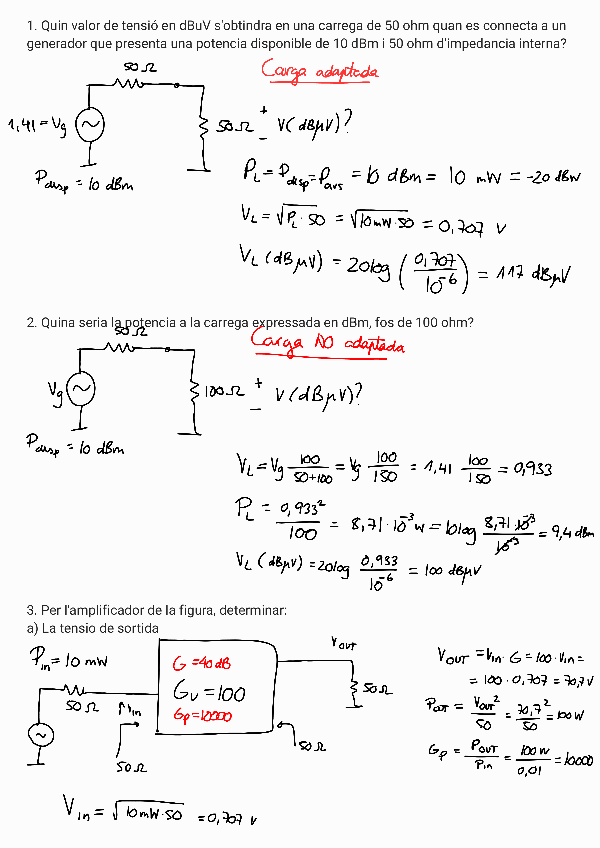 1. Quin valor de tensió en dBuV s'obtindra en una carrega de 50 ohm quan es connecta a un
generador que presenta una potencia disponible de 10 dBm i 50 ohm d'impedancia interna?
50 Ω
Carga adaptada
1,41 = Vg
50 Ω
+
-
V(dBμV)?
Pdisp = 10 dBm
PL = Pdisp = Pavs = 10 dBm = 10 mW = -20 dBW
VL = √PL · 50 = √10mW·50 = 0,707 V
VL (dBμV) = 20log (0,707/10^-6) = 117 dBμV
2. Quina seria la potencia a la carrega expressada en dBm, fos de 100 ohm?
50 Ω
Carga NO adaptada
Vg
100 Ω
+
-
V(dBμV)?
Pdisp = 10 dBm
VL = Vg 100/50+100 = Vg 100/150 = 1,41 100/150 = 0,933
PL = 0,933²/100 = 8,71·10^-3 W = 10log 8,71·10^-3/10^-3 = 9,4 dBm
VL (dBμV) = 20log 0,933/10^-6 = 100 dBμV
3. Per l'amplificador de la figura, determinar:
a) La tensio de sortida
Pin = 10 mW
50 Ω
Vin
50 Ω
G = 40 dB
Gv = 100
Gp = 10000
VOUT
50 Ω
50 Ω
VOUT = Vin · G = 100 · Vin =
= 100 · 0,707 = 70,7 V
POUT = VOUT²/50 = 70,7²/50 = 100 W
Gp = POUT/Pin = 100 W/0,01 = 10000
Vin = √10mW·50 = 0,707 V